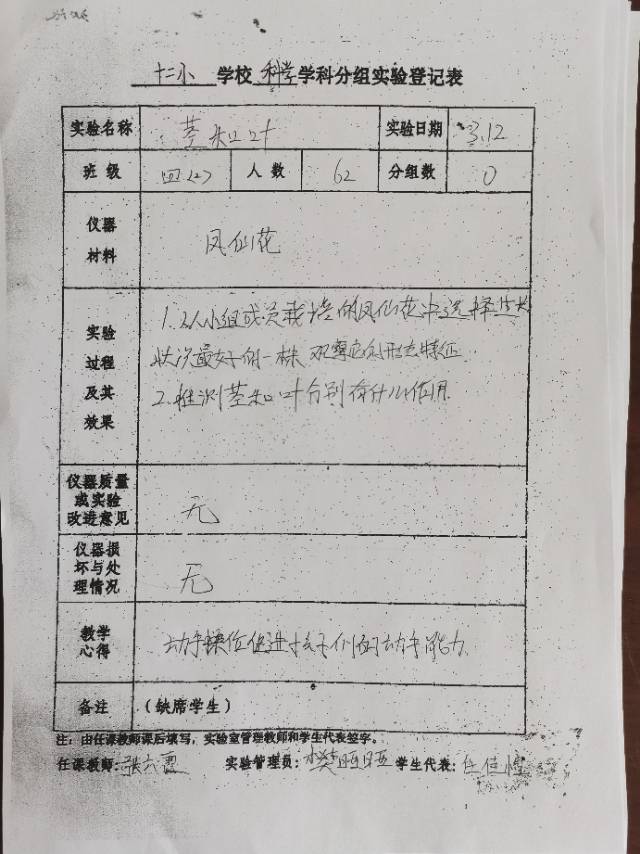 十二小 学校 科学 学科分组实验登记表
实验名称 茎和叶 实验日期 3.12
班级 四(2) 人数 62 分组数 0
仪器材料 凤仙花
实验过程及其效果
1.从小组成员栽培的凤仙花中选择生长
状况最好的一株,观察它的形态特征.
2.推测茎和叶分别有什么作用.
仪器质量或实验改进意见 无
仪器损坏与处理情况 无
教学心得 动手操作促进孩子们的动手能力.
备注 (缺席学生)
注:由任课教师课后填写,实验室管理教师和学生代表签字。
任课教师: 张六霞 实验管理员: 樊旺旺 学生代表: 任佳